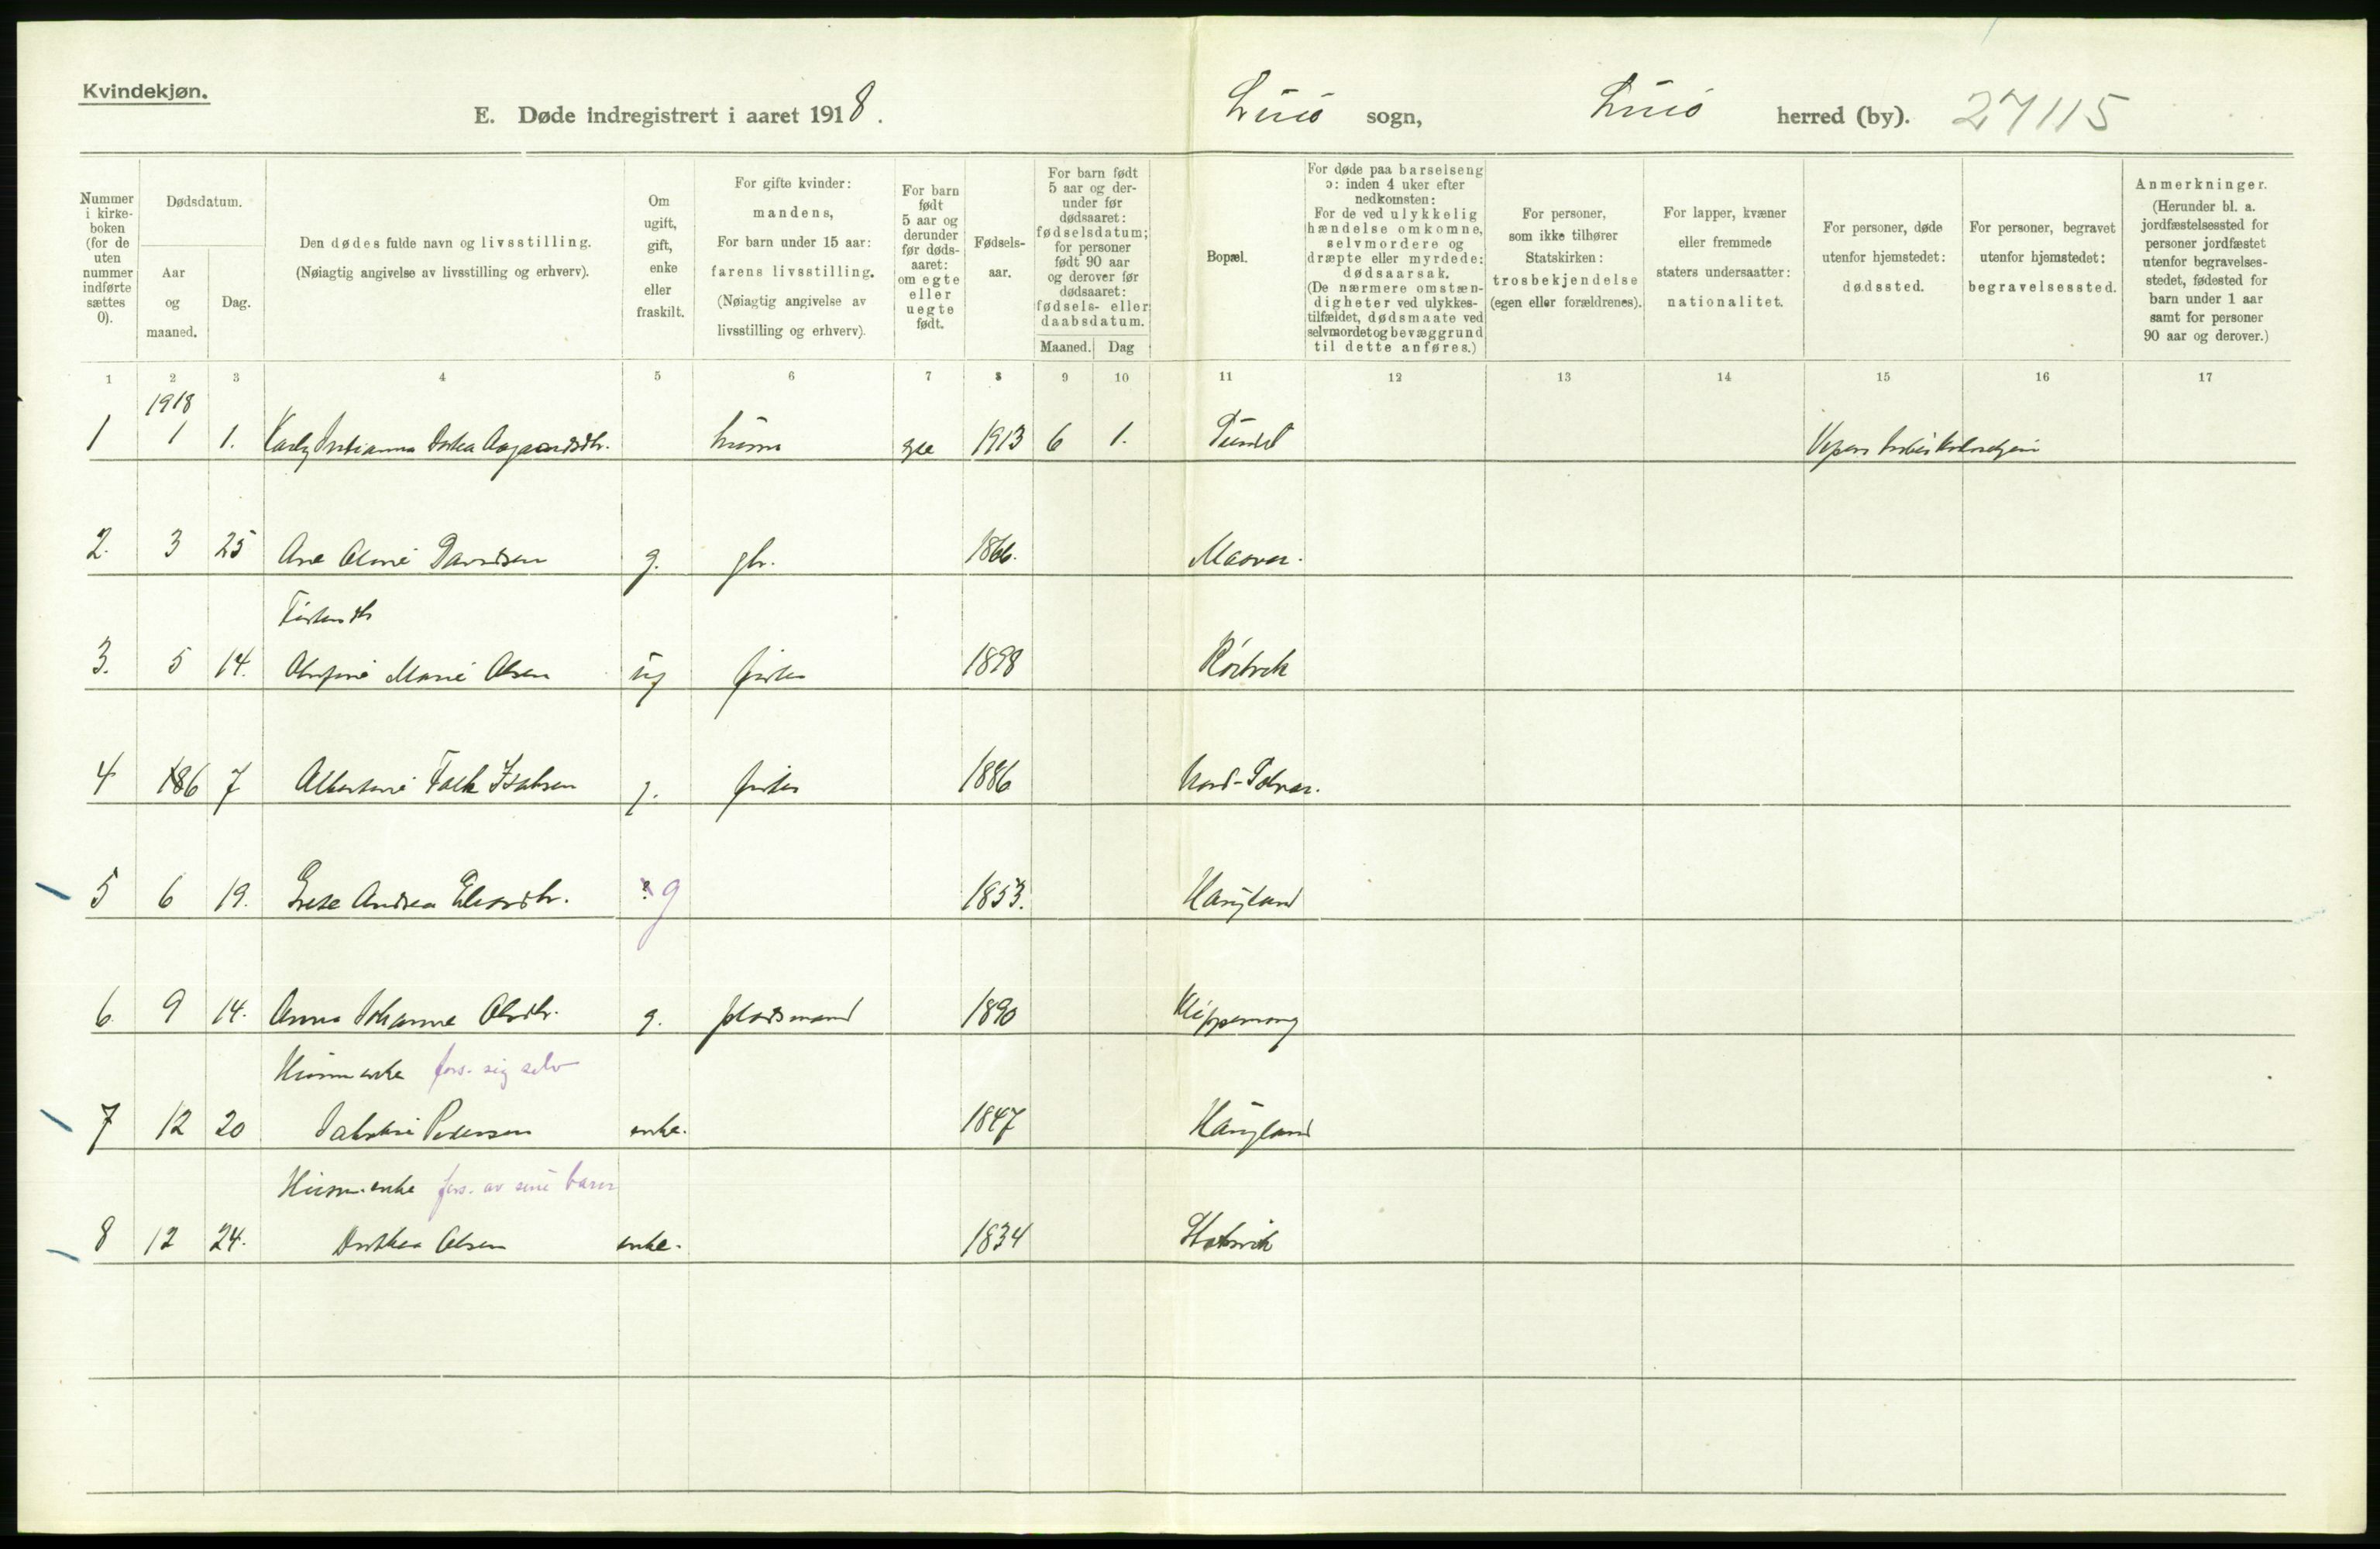 Kvindekjøn.
E. Døde indregistrert i aaret 1918.
Lurø sogn, Lurø herred (by). 27115
Nummer i kirke- boken (for de uten nummer indførte sættes 0).
Dødsdatum.
Aar og maaned.
Dag.
Den dødes fulde navn og livsstilling.
(Nøiagtig angivelse av livsstilling og erhverv).
Om ugift, gift, enke eller fraskilt.
For gifte kvinder: mandens, For barn under 15 aar: farens livsstilling. (Nøiagtig angivelse av livsstilling og erhverv).
For barn født 5 aar og derunder før døds- aaret: om egte eller uegte født.
Fødsels- aar.
For barn født 5 aar og der- under før dødsaaret: fødselsdatum; for personer født 90 aar og derover før dødsaaret: fødsels- eller daabsdatum.
Maaned. Dag
Bopæl.
For døde paa barselseng ɔ: inden 4 uker efter nedkomsten: For de ved ulykkelig hændelse omkomne, selvmordere og dræpte eller myrdede: dødsaarsak. (De nærmere omstæn- digheter ved ulykkes- tilfældet, dødsmaate ved selvmordet og bevæggrund til dette anføres.)
For personer, som ikke tilhører Statskirken: trosbekjendelse (egen eller forældrenes).
For lapper, kvæner eller fremmede staters undersaatter: nationalitet.
For personer, døde utenfor hjemstedet: dødssted.
For personer, begravet utenfor hjemstedet: begravelsessted.
Anmerkninger. (Herunder bl. a. jordfæstelsessted for personer jordfæstet utenfor begravelses- stedet, fødested for barn under 1 aar samt for personer 90 aar og derover.)
1 2 3 4 5 6 7 8 9 10 11 12 13 14 15 16 17
1918
1 1 1. 1913 6 1.
2. 3 25 Ane Davidsen g. gbr. 1866.
3. 5 14. Marie Olsen ug fisker 1898
4 6 7 Falk Isaksen g. fisker 1886
5 6 19. Grete Andrea ? g 1853. Haugland
6. 9 14. Anna Johanna Olsdtr. g. pladsmand 1890
Husm. enke fors. sig selv
7 12 20 Pedersen enke. 1847 Haugland
Husm. enke fors. av sine barn
8 12 24. Dorthea Olsen enke. 1834